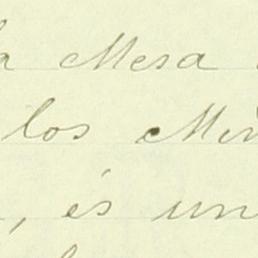 a Mesa
los Min
, és un